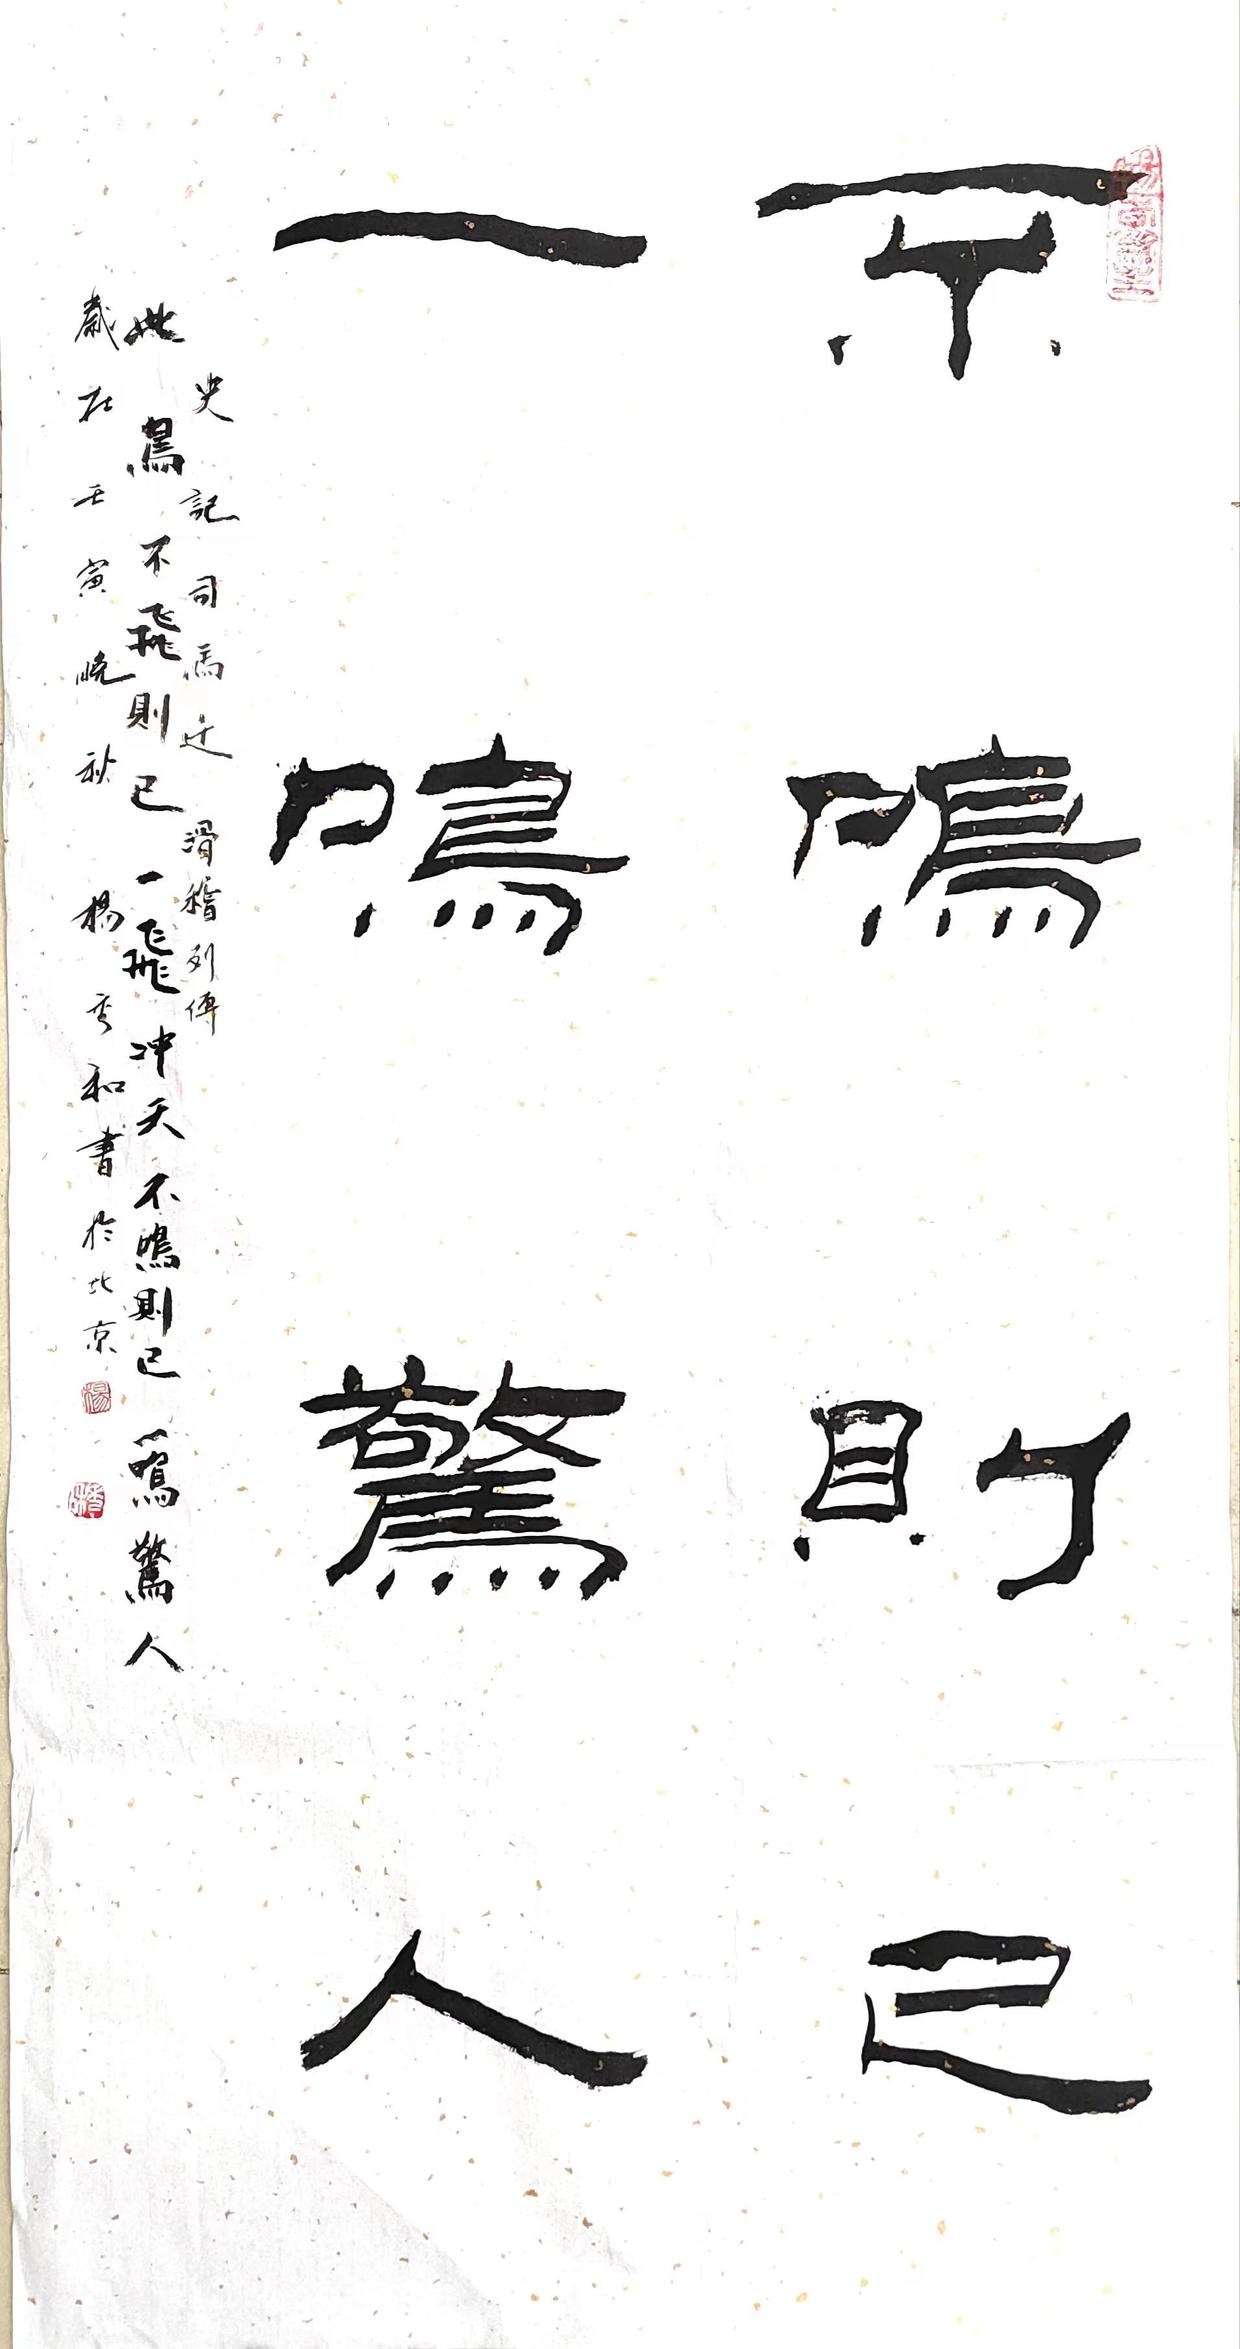 不鳴則已
一鳴驚人
史記司馬迁滑稽列傳
此鳥不飛則已一飛冲天不鳴則已一鳴驚人
歲在壬寅晚秋楊秀和書於北京
楊